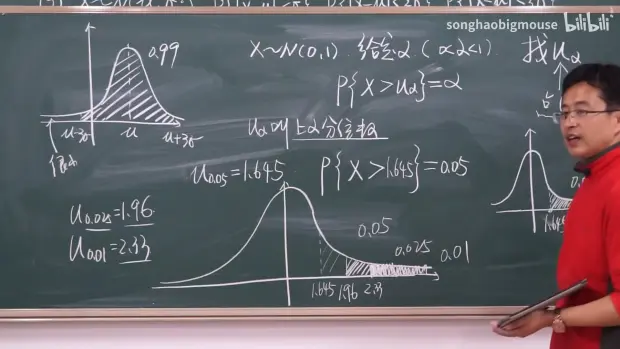 songhaobigmouse bilibili
0.99
X~N(0,1). 给定α (0<α<1)
找uα
P{X>uα}=α
μ-3σ
μ
μ+3σ
uα叫上α分位数
u0.05=1.645
P{X>1.645}=0.05
1.645
u0.025=1.96
u0.01=2.33
0.05
0.025
0.01
1.645
1.96
2.33